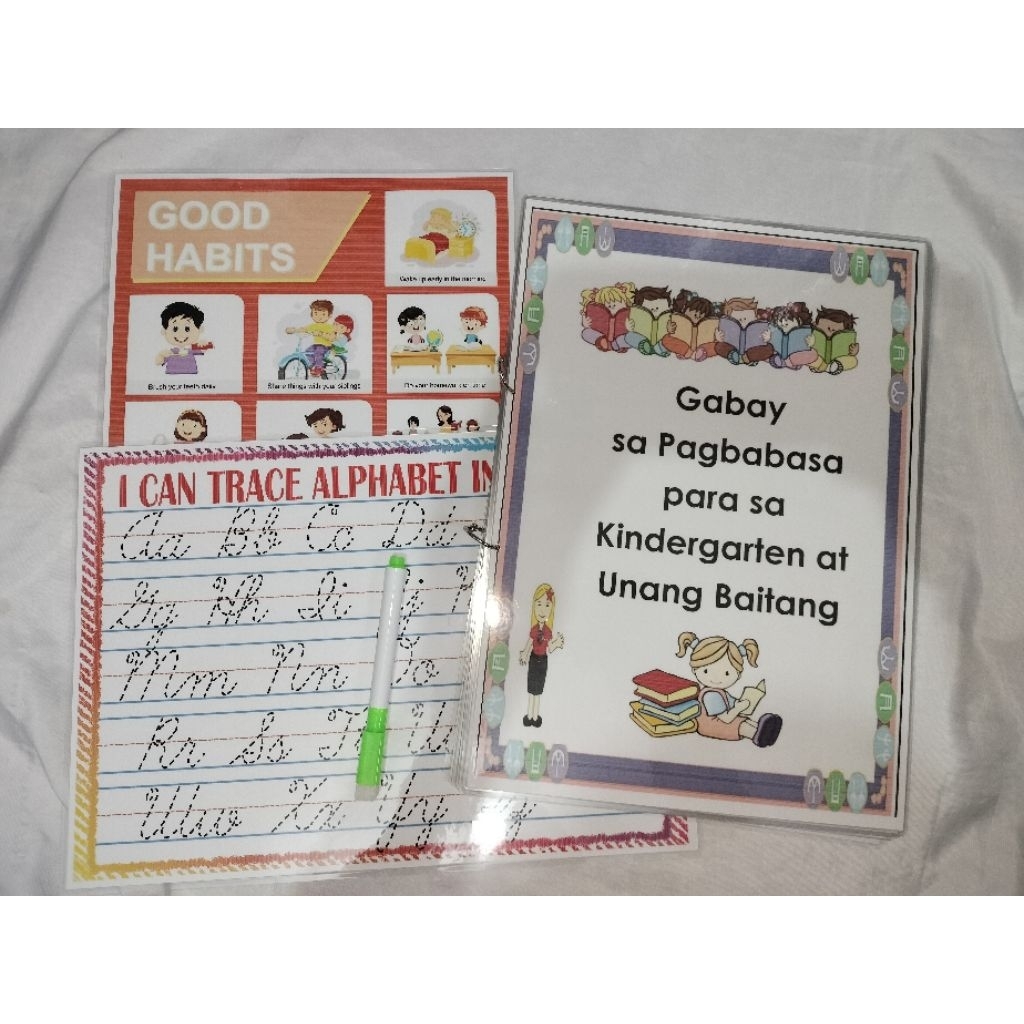 GOOD
HABITS
Wake up early in the morning
Brush your teeth daily
Share things with your siblings
Do your homework on time
I CAN TRACE ALPHABET IN
Aa Bb Cc Dd
Gg Hh Ii Jj
Mm Nn Oo
Rr Ss Tt Uu
Ww Xx Yy Zz
Gabay
sa Pagbabasa
para sa
Kindergarten at
Unang Baitang